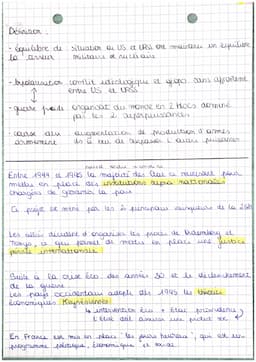 Définition :
- équilibre de situation où US et URSS ont maintenu un équilibre
la terreur militaire et nucléaire
- bipolarisation conflit idéologique et géopo sans affrontement
entre US et URSS
- guerre froide organisat° du monde en 2 blocs dominé
par les 2 superpuissances
- course aux augmentation de production d'armes
armement
Entre 1944 et 1945 la majorité des États se réunissent pour
mettre en place des institutions supra nationales
chargées de garantir la paix
Ce projet est mené par les 2 principaux vainqueurs de la 2GM
Les alliés décident d'organiser les procès de Nuremberg et
Tokyo, ce qui permet de mettre en place une justice
pénale internationale.
Suite à la crise éco. des années 30 et le déclenchement
de la guerre
Les pays occidentaux adoptent dès 1945 les théories
économiques Keynésiennes
↳ intervention État + État providence
l'État doit assurer une protect° soc
En France est mis en place "les jours heureux", qui est un
programme politique, économique et social